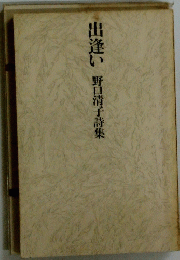 出逢い
野口清子詩集